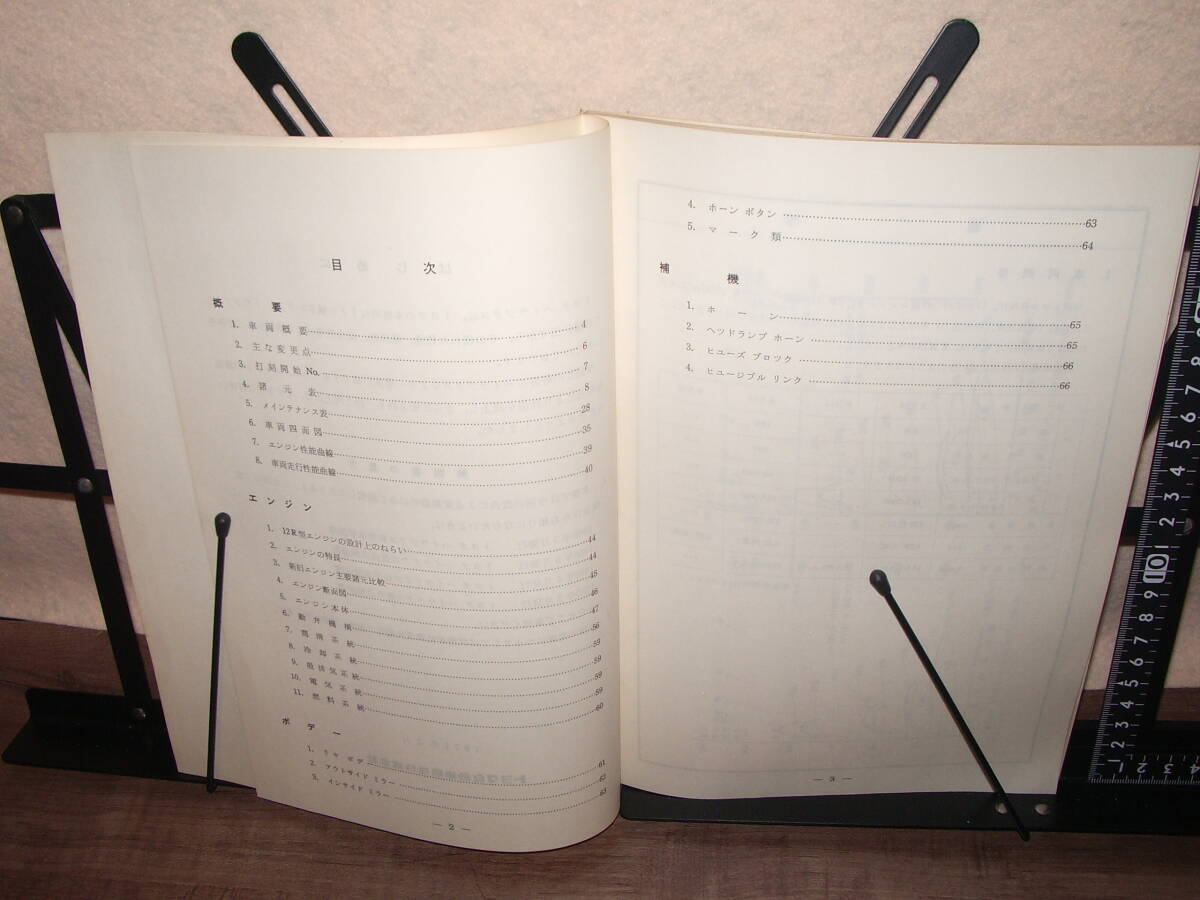 目次
概要
1. 車両概要 4
2. 主な変更点 6
3. 打刻開始 No. 7
4. 諸元表 8
5. メインテナンス表 28
6. 車両四面図 35
7. エンジン性能曲線 39
8. 車両走行性能曲線 40
エンジン
1. 12R型エンジンの設計上のねらい 44
2. エンジンの特長 44
3. 新旧エンジン主要諸元比較 45
4. エンジン断面図 46
5. エンジン本体 47
6. 動弁機構 56
7. 潤滑系統 59
8. 冷却系統 59
9. 吸排気系統 59
10. 電気系統 59
11. 燃料系統 60
ボデー
1. リヤ ボデー 61
2. アウトサイド ミラー 62
3. インサイド ミラー 63
— 2 —
4. ホーン ボタン 63
5. マーク類 64
補機
1. ホーン 65
2. ヘッドランプ ホーン 65
3. ヒューズ ブロック 66
4. ヒュージブル リンク 66
— 3 —